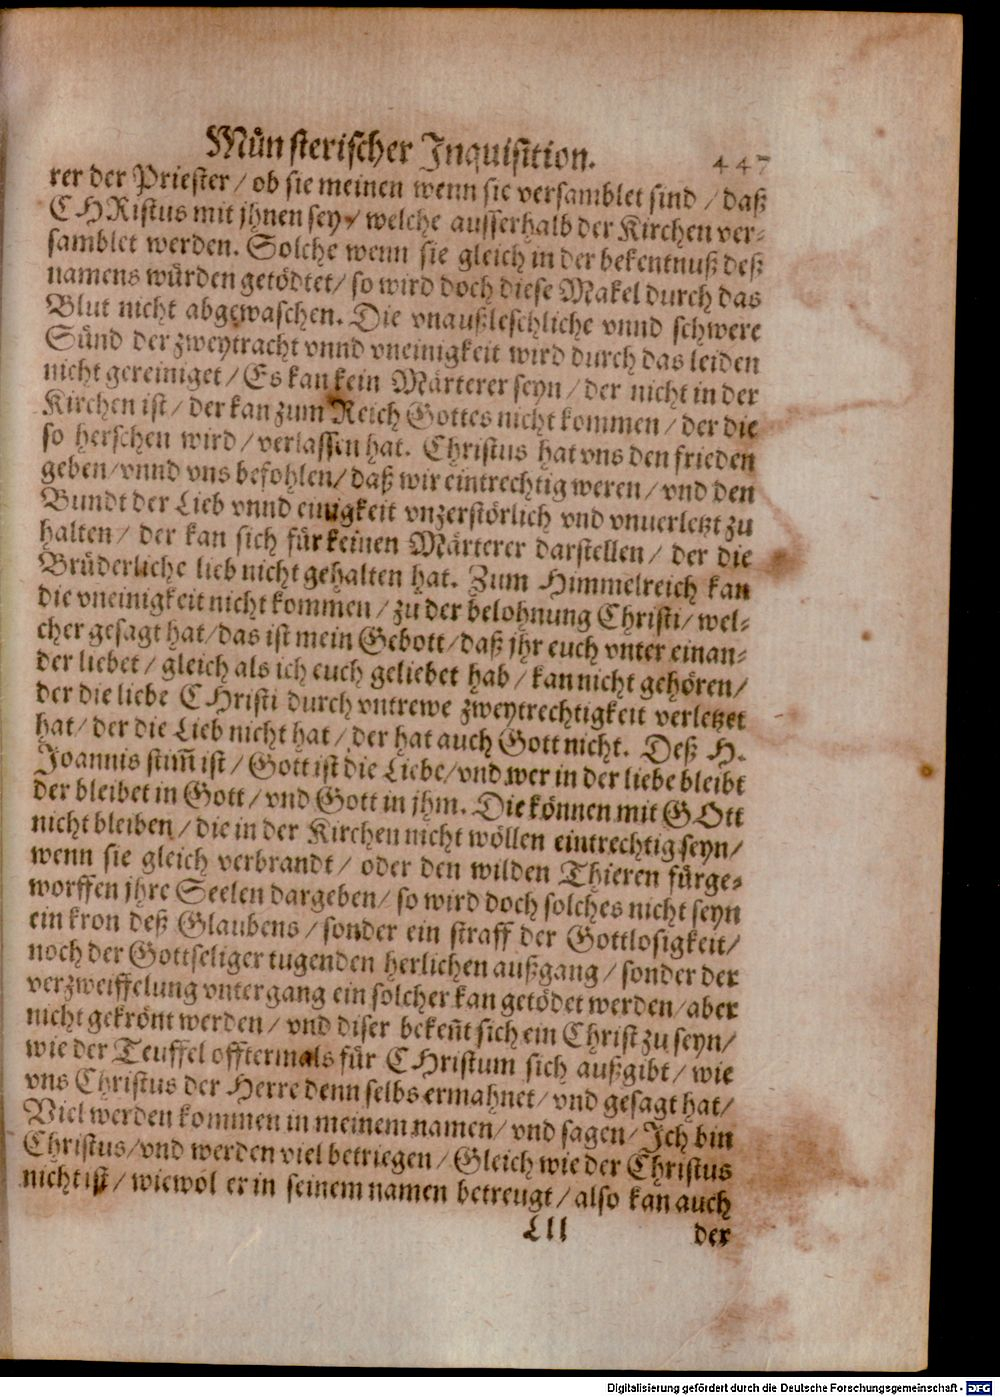 Münsterischer Inquisition. 447
rer der Priester / ob sie meinen wenn sie versamblet sind / daß
CHRistus mit jhnen sey / welche ausserhalb der Kirchen ver-
samblet werden. Solche wenn sie gleich in der bekentnuß deß
namens würden getödtet / so wird doch diese Makel durch das
Blut nicht abgewaschen. Die vnaußleschliche vnnd schwere
Sünd der zweytracht vnnd vneinigkeit wird durch das leiden
nicht gereiniget / Es kan kein Märterer seyn / der nicht in der
Kirchen ist / der kan zum Reich Gottes nicht kommen / der die
so herschen wird / verlassen hat. Christus hat vns den frieden
geben / vnnd vns befohlen / daß wir eintrechtig weren / vnd den
Bundt der Lieb vnnd einigkeit vnzerstörlich vnd vnuerletzt zu
halten / der kan sich für keinen Märterer darstellen / der die
Brüderliche lieb nicht gehalten hat. Zum Himmelreich kan
die vneinigkeit nicht kommen / zu der belohnung Christi / wel-
cher gesagt hat / das ist mein Gebott / daß jhr euch vnter einan-
der liebet / gleich als ich euch geliebet hab / kan nicht gehören /
der die liebe CHristi durch vntrewe zweytrechtigkeit verletzet
hat / der die Lieb nicht hat / der hat auch Gott nicht. Deß H.
Joannis stim̃ ist / Gott ist die Liebe / vnd wer in der liebe bleibt
der bleibet in Gott / vnd Gott in jhm. Die können mit GOtt
nicht bleiben / die in der Kirchen nicht wöllen eintrechtig seyn /
wenn sie gleich verbrandt / oder den wilden Thieren fürge-
worffen jhre Seelen dargeben / so wird doch solches nicht seyn
ein kron deß Glaubens / sonder ein straff der Gottlosigkeit /
noch der Gottseliger tugenden herlichen außgang / sonder der
verzweiffelung vntergang ein solcher kan getödet werden / aber
nicht gekrönt werden / vnd diser beken̄t sich ein Christ zu seyn /
wie der Teuffel offtermals für CHristum sich außgibt / wie
vns Christus der Herre denn selbs ermahnet / vnd gesagt hat /
Viel werden kommen in meinem namen / vnd sagen / Ich bin
Christus / vnd werden viel betriegen / Gleich wie der Christus
nicht ist / wiewol er in seinem namen betreugt / also kan auch
Lll der
Digitalisierung gefördert durch die Deutsche Forschungsgemeinschaft - DFG